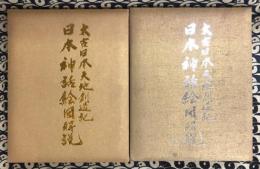 太古日本天地創造記
日本神話絵図解説
太古日本天地創造記
日本神話絵図解説